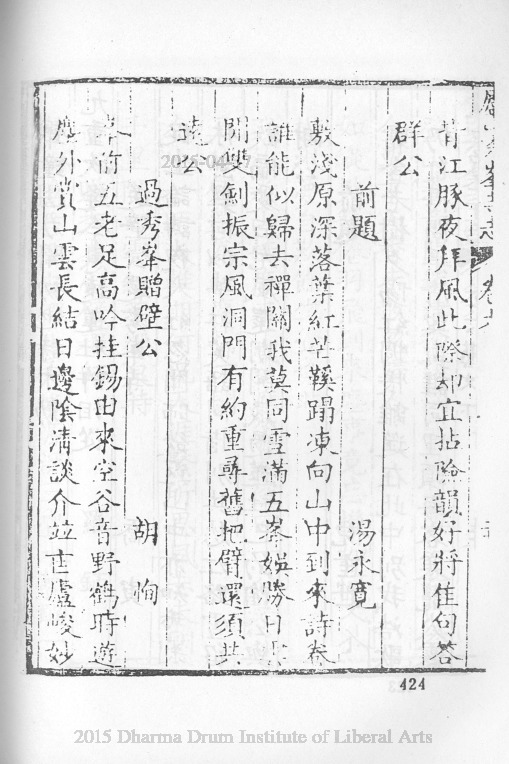 青江豚夜拜風此際却宜拈險韻好將佳句答
群公
前題 湯永寬
敷淺原深落葉紅芒鞵蹋凍向山中到來詩卷
誰能似歸去禪關我莫同雪滿五峯娛勝日
開雙劍振宗風洞門有約重尋舊把臂還須共
遠公
過秀峯贈壁公 胡恂
峯前五老足高吟挂錫由來空谷音野鶴時遊
塵外賞山雲長結日邊陰清談介竝匡廬峻妙
卷六
424
2015 Dharma Drum Institute of Liberal Arts